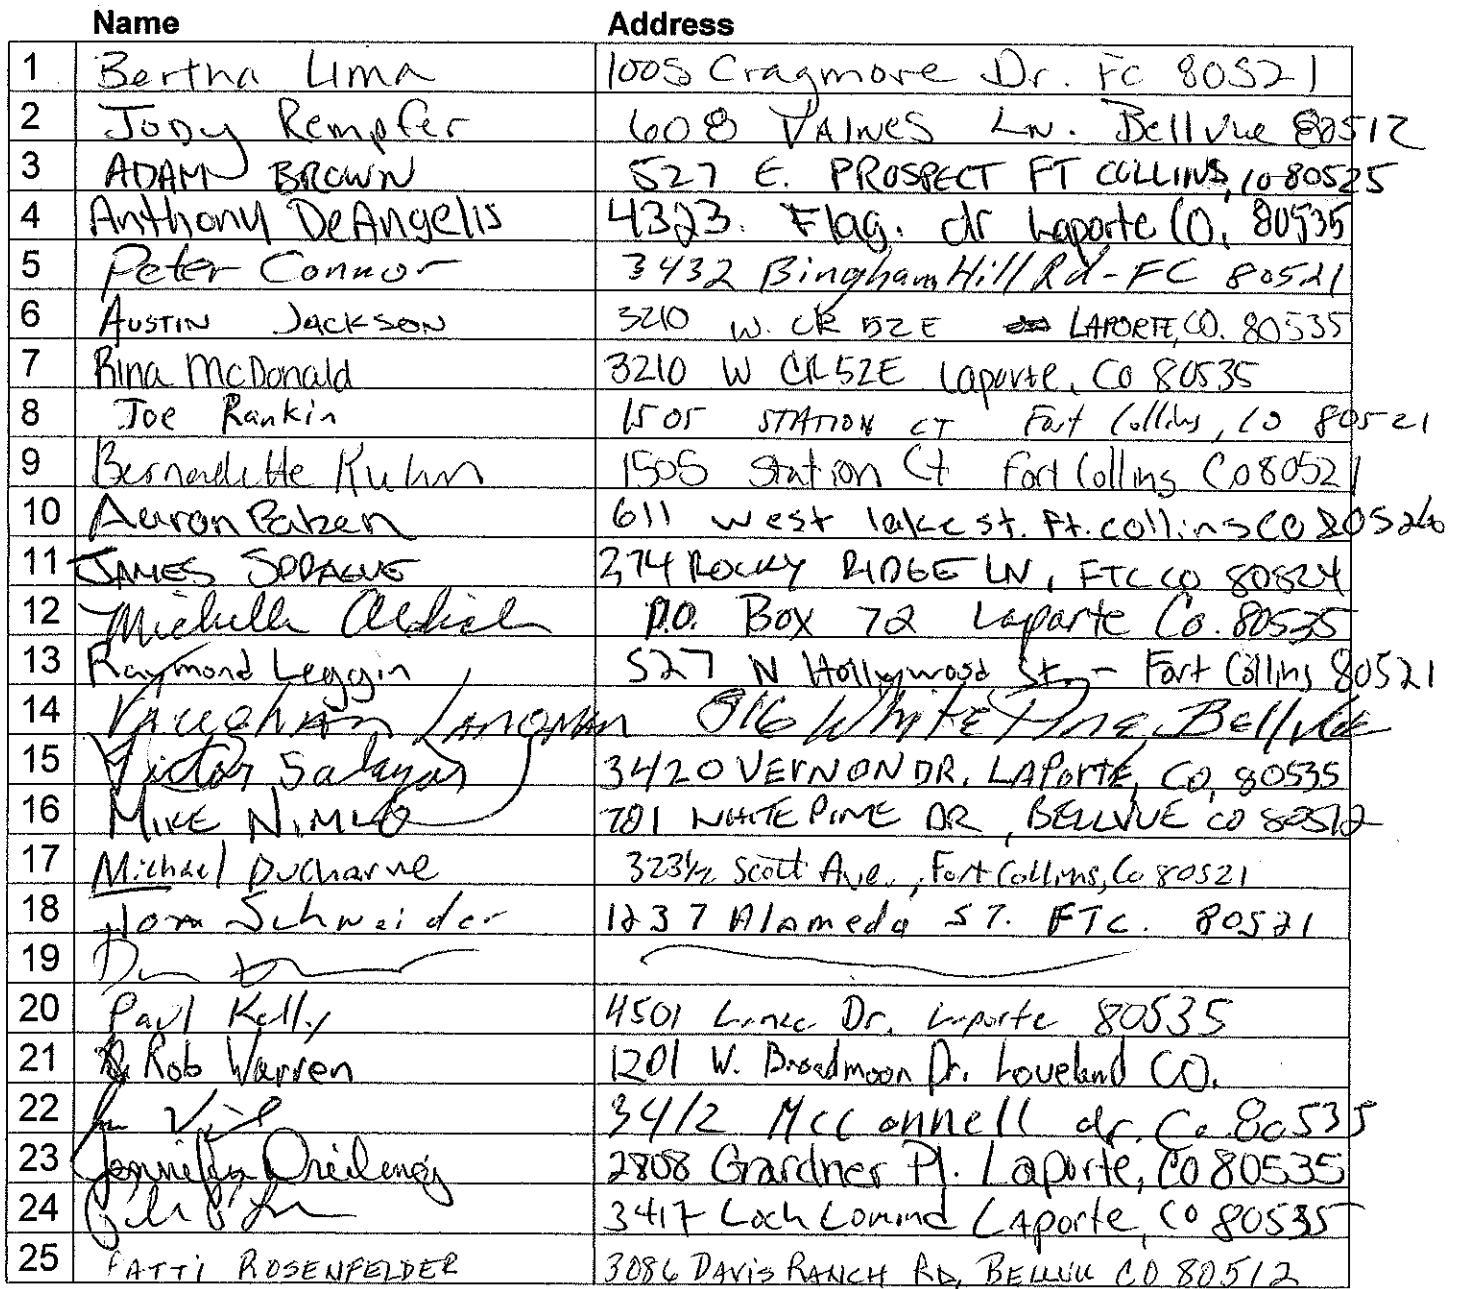 Name Address
1 Bertha Lima 1005 Cragmore Dr. FC 80521
2 Jody Rempfer 608 VAINES LN. Bellvue 80512
3 ADAM BROWN 527 E. PROSPECT FT COLLINS, CO 80525
4 Anthony DeAngelis 4323. Flag. dr Laporte CO, 80535
5 Peter Connor 3432 Bingham Hill Rd - FC 80521
6 AUSTIN JACKSON 3210 W. CR 52E LAPORTE, CO. 80535
7 Rina McDonald 3210 W CR 52E Laporte, Co 80535
8 Joe Rankin 1505 STATION CT Fort Collins, CO 80521
9 Bernadette Kuhn 1505 Station Ct Fort Collins CO 80521
10 Aaron 611 west lake st. Ft. collins CO 80526
11 JAMES SPRAGUE 274 ROCKY RIDGE LN, FTC CO 80524
12 Michelle P.O. Box 72 Laporte Co. 80535
13 Raymond Leggin 527 N Hollywood St. - Fort Collins 80521
14 VAUGHAN LANGMAN 816 White Pine, Bellvue
15 Victor Salazar 3420 VERNON DR. LAPorte, CO, 80535
16 MIKE NIMLO 781 WHITE PINE DR, BELLVUE CO 80512
17 Michael Ducharme 323½ Scott Ave., Fort Collins, Co 80521
18 Tom Schneider 1237 Alameda ST. FTC. 80521
19
20 Paul Kelly 4501 Dr. Laporte 80535
21 Rob Warren 1201 W. Broadmoor Dr. Loveland CO.
22 3412 McConnell dr. Co 80535
23 Jennifer 2808 Gardner Pl. Laporte, CO 80535
24 3417 Loch Lomind LAPorte, CO 80535
25 PATTI ROSENFELDER 3086 DAVIS RANCH RD, BELLVUE CO 80512